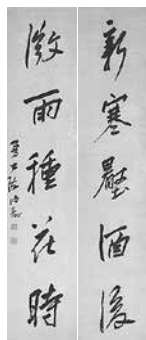 新寒壓酒後
微雨種花時